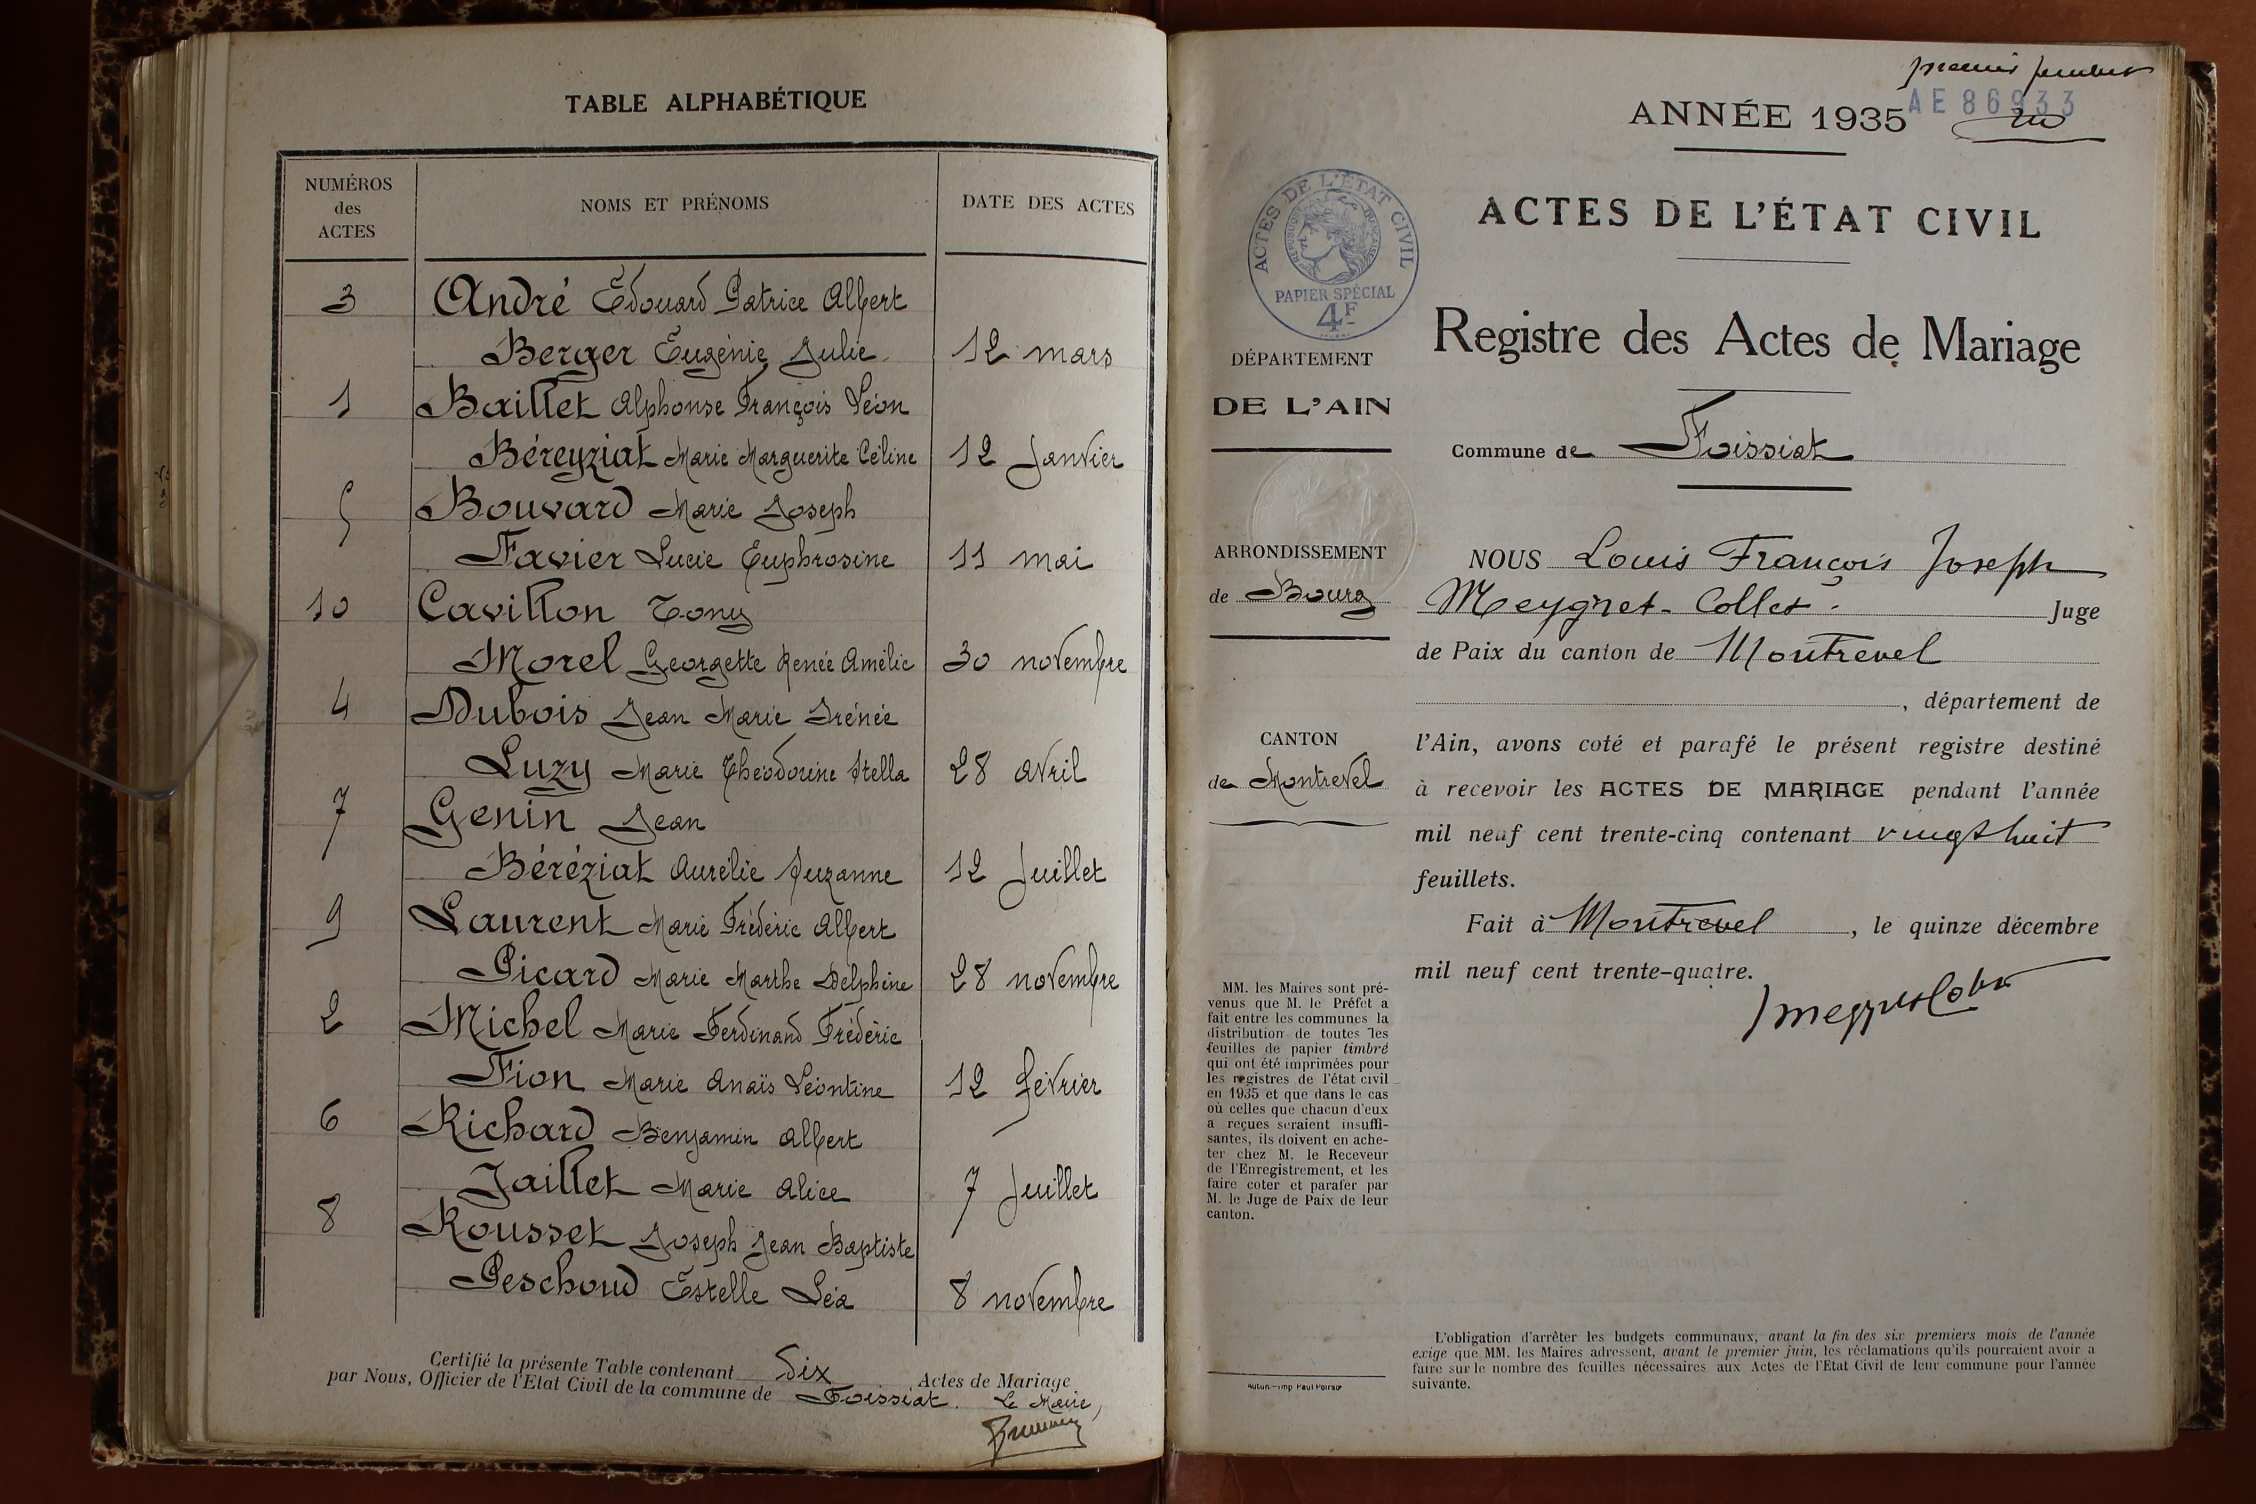 TABLE ALPHABÉTIQUE
NUMÉROS des ACTES
NOMS ET PRÉNOMS
DATE DES ACTES
3 André Édouard Patrice Albert
Berger Eugénie Julie 12 mars
1 Baillet Alphonse François Léon
Béreyziat Marie Marguerite Céline 12 Janvier
5 Bouvard Marie Joseph
Favier Lucie Euphrosine 11 mai
10 Cavillon Tony
Morel Georgette Renée Amélie 30 novembre
4 Dubois Jean Marie Irénée
Luzy Marie Théodorine Stella 28 avril
7 Genin Jean
Béréziat Aurélie Suzanne 12 Juillet
9 Laurent Marie Frédéric Albert
Picard Marie Marthe Delphine 28 novembre
2 Michel Marie Ferdinand Frédéric
Fion Marie Anaïs Léontine 12 février
6 Richard Benjamin Albert
Jaillet Marie Alice 7 Juillet
8 Rousset Joseph Jean Baptiste
Peschoud Estelle Léa 8 novembre
Certifié la présente Table contenant Dix Actes de Mariage
par Nous, Officier de l'Etat Civil de la commune de Foissiat. Le Maire,
premier feuillet
AE 86933
ANNÉE 1935
ACTES DE L'ÉTAT CIVIL
ACTES DE L'ÉTAT CIVIL
RÉPUBLIQUE FRANÇAISE
PAPIER SPÉCIAL
4F
Registre des Actes de Mariage
DÉPARTEMENT
DE L'AIN
Commune de Foissiat
ARRONDISSEMENT
de Bourg
CANTON
de Montrevel
NOUS Louis François Joseph
Meygret-Collet. Juge
de Paix du canton de Montrevel
, département de
l'Ain, avons coté et parafé le présent registre destiné
à recevoir les ACTES DE MARIAGE pendant l'année
mil neuf cent trente-cinq contenant vingt huit
feuillets.
Fait à Montrevel, le quinze décembre
mil neuf cent trente-quatre.
MM. les Maires sont pré-
venus que M. le Préfet a
fait entre les communes la
distribution de toutes les
feuilles de papier timbré
qui ont été imprimées pour
les registres de l'état civil
en 1935 et que dans le cas
où celles que chacun d'eux
a reçues seraient insuffi-
santes, ils doivent en ache-
ter chez M. le Receveur
de l'Enregistrement, et les
faire coter et parafer par
M. le Juge de Paix de leur
canton.
Autun.—Imp Paul Poirson
L'obligation d'arrêter les budgets communaux, avant la fin des six premiers mois de l'année
exige que MM. les Maires adressent, avant le premier juin, les réclamations qu'ils pourraient avoir a
faire sur le nombre des feuilles nécessaires aux Actes de l'Etat Civil de leur commune pour l'année
suivante.